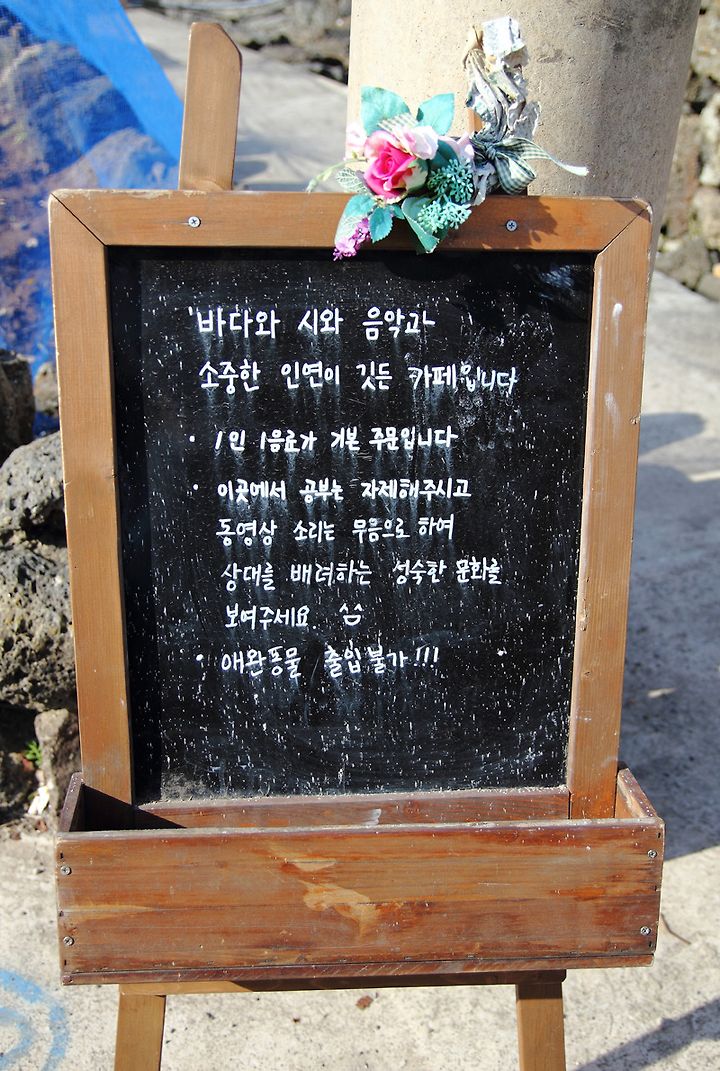 '바다와 시와 음악과
소중한 인연이 깃든 카페입니다
· 1인 1음료가 기본 주문입니다
· 이곳에서 공부는 자제해주시고
동영상 소리는 무음으로 하여
상대를 배려하는 성숙한 문화를
보여주세요 ^^
· 애완동물 출입불가!!!